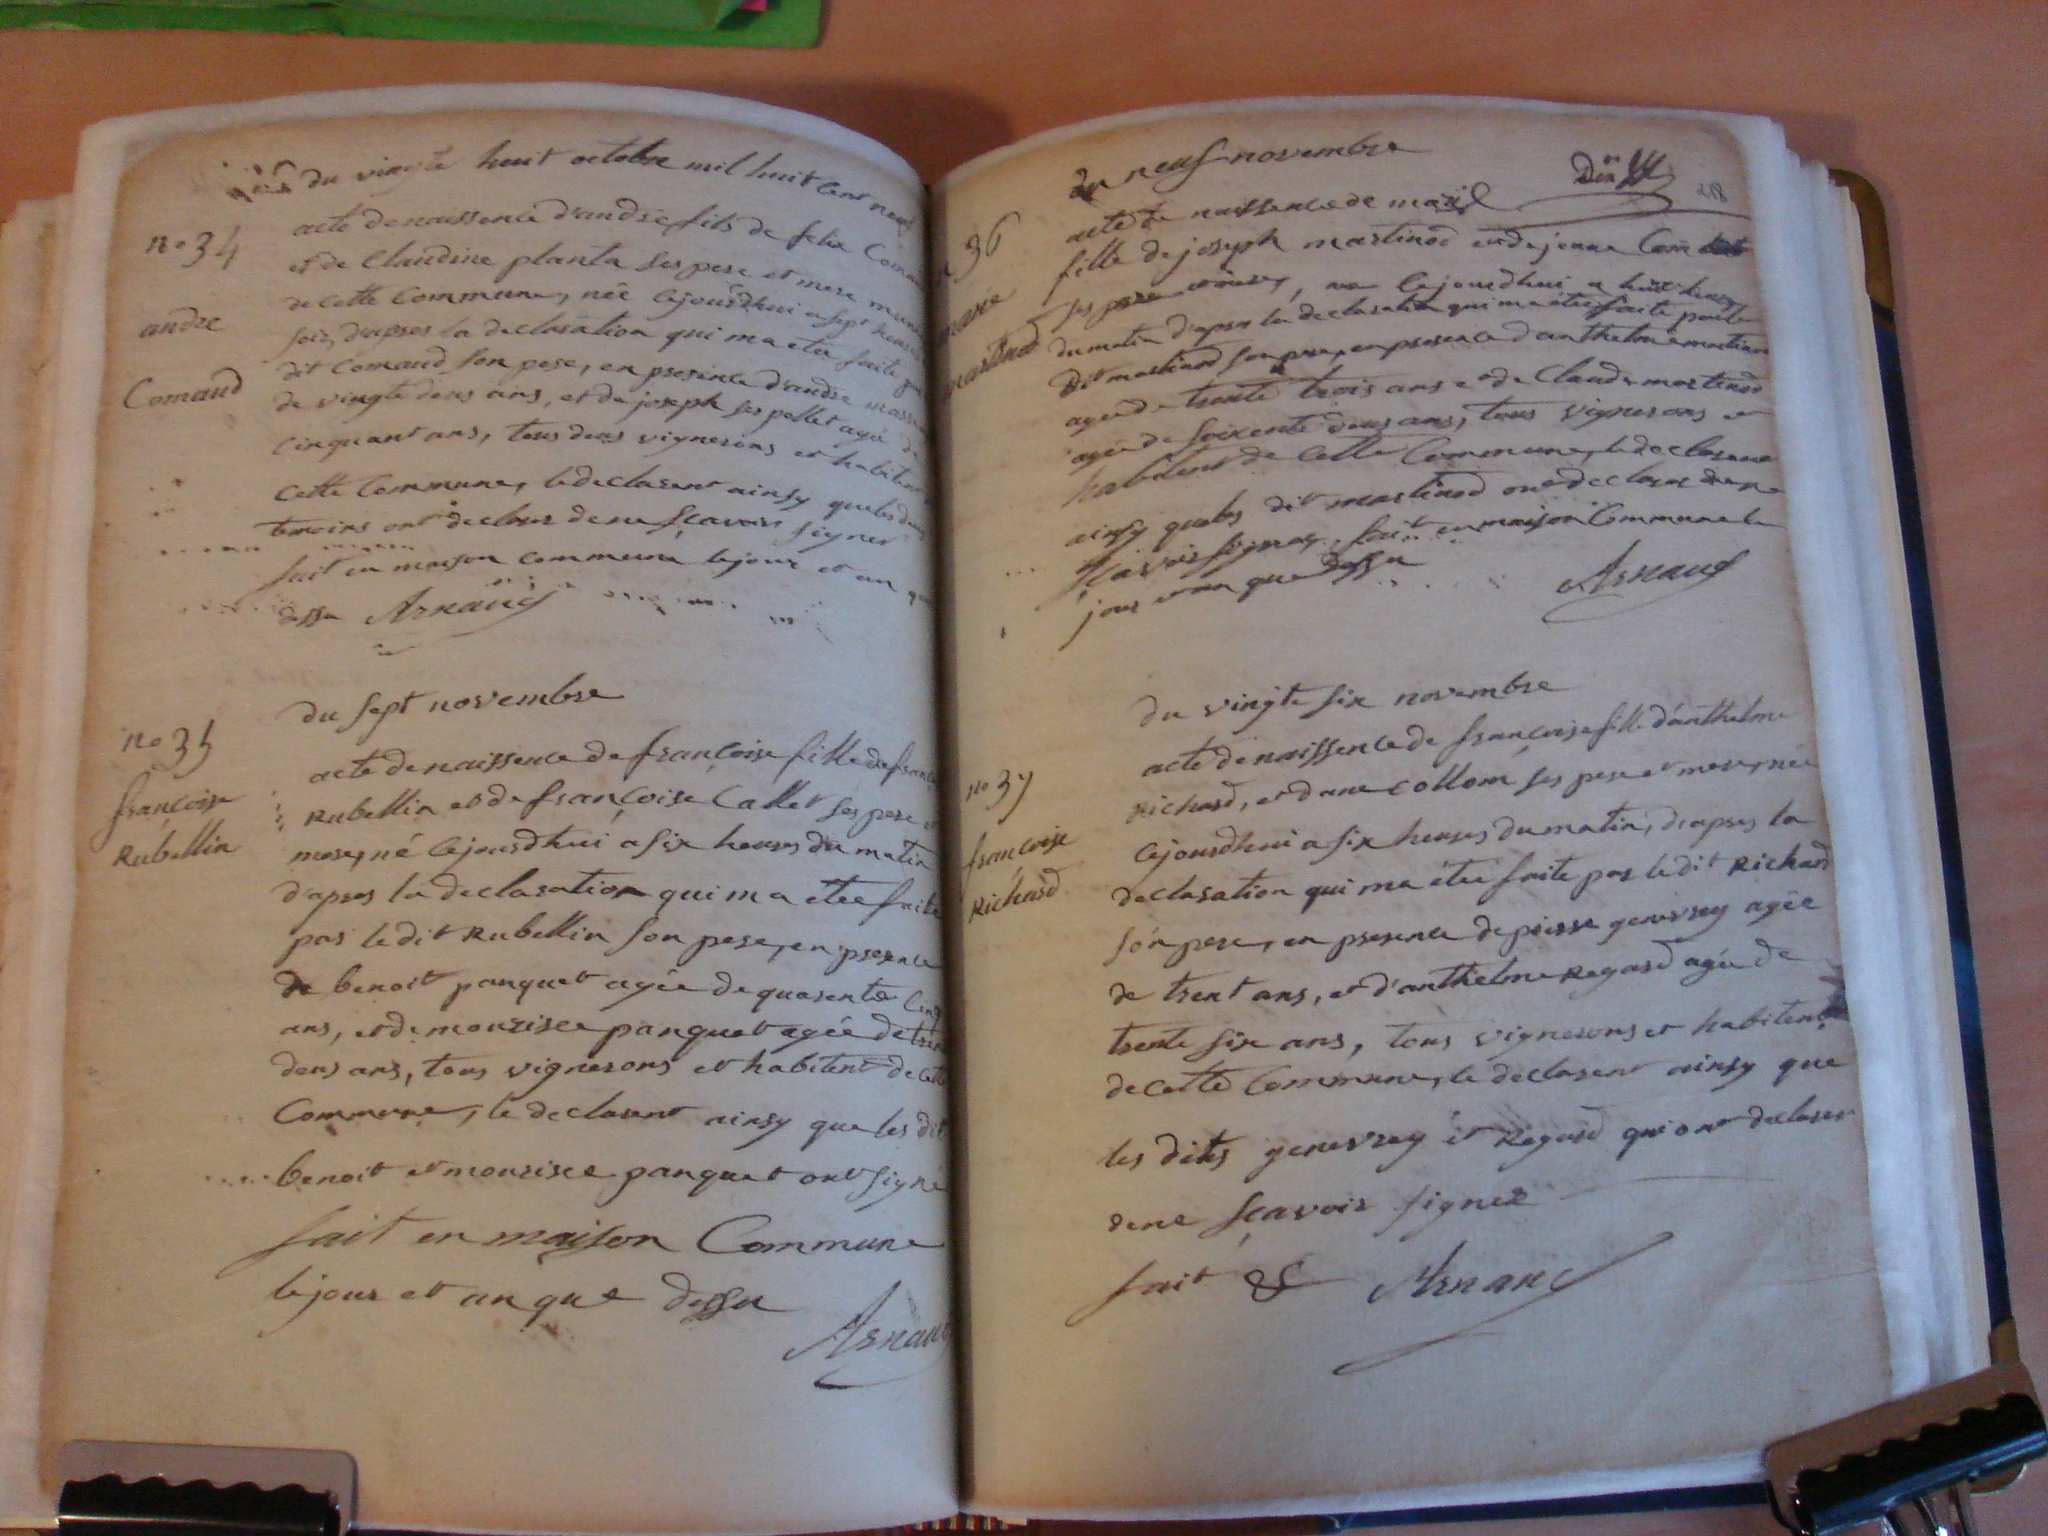 du vingte huit octobre mil huit cent neuf
no 34
andre
Comaud
acte de naissence d'andre fils de felix Comaud
et de Claudine planta ses pere et mere
de cette Commune, née cejourdhui a sept heures
soir, d'apres la declaration qui ma etee faite par
dit Comaud son pere, en presence d'andre
de vingte deus ans, et de joseph ser pollet agé de
cinquant ans, tous deus vignerons et habitent
cette Commune, le declarent ainsy que les deus
temoins ont declarer de ne sçavoir signer
fait en maison commune le jour et an que
dessu Arnaud
du sept novembre
no 35
françoise
Rubellin
acte de naissence de françoise fille de
Rubellin et de françoise Callet ses pere et
mere, né cejourdhui a six heures du matin
d'apres la declaration qui ma etee faite
par le dit Rubellin son pere, en presence
de benoit panquet agée de quarente cinq
ans, et de mourisee panquet agée de trente
deus ans, tous vignerons et habitent de cette
Commune, le declarent ainsy que les dit
benoit et mourisee panquet ont signé
fait en maison Commune
le jour et an que dessu
Arnaud
du neuf novembre
Dön
218
36
marie
martinod
acte de naissence de marie
fille de joseph martinod et de jenne
ses pere et mere, née cejourdhui a huit heures
du matin d'apres la declaration qui ma etee faite par le
dit martinod son pere, en presence d'anthelme martinod
agée de trente trois ans et de Claude martinod
agée de soixente deus ans, tous vignerons et
habitent de cette Commune, le declarent
ainsy que les dit martinod ont declarer de ne
sçavoir signer, fait en maison Commune le
jour et an que dessu
Arnaud
du vingte six novembre
no 37
françoise
Richard
acte de naissence de françoise fille d'anthelme
Richard, et d'ane collom ses pere et mere, née
cejourdhui a six heures du matin, d'apres la
declaration qui ma étee faite par le dit Richard
son pere, en presence de pierre genevrey agée
de trent ans, et d'anthelme Regard agée de
trente six ans, tous vignerons et habitent
de cette Commune, le declarent ainsy que
les dits genevrey et Regard qui ont declarer
de ne sçavoir signer
fait & Arnaud